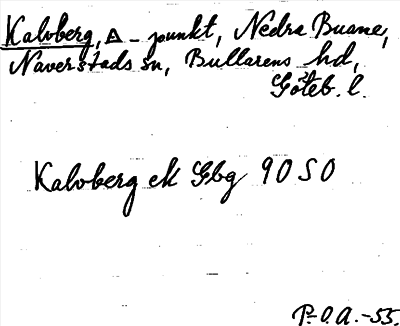 Kalvberg, △ - punkt, Nedra Buane,
Naverstads sn, Bullarens hd,
Göteb. l.
Kalvberg ek Gbg 90 SO
P.-O.A. -55.